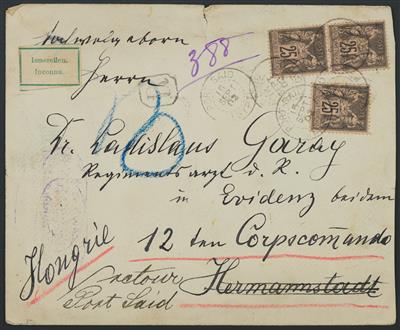 Hochwolgeborn
388
Ismeretlen.
Inconnu.
Herrn
R
PORT SAID
25
25
25
Dr. Ladislaus Garay
Regimentsarzt d. R.
in Evidenz beidem
12 ten Corpscommando
Hermannstadt
Hongrie
retour
Port Said